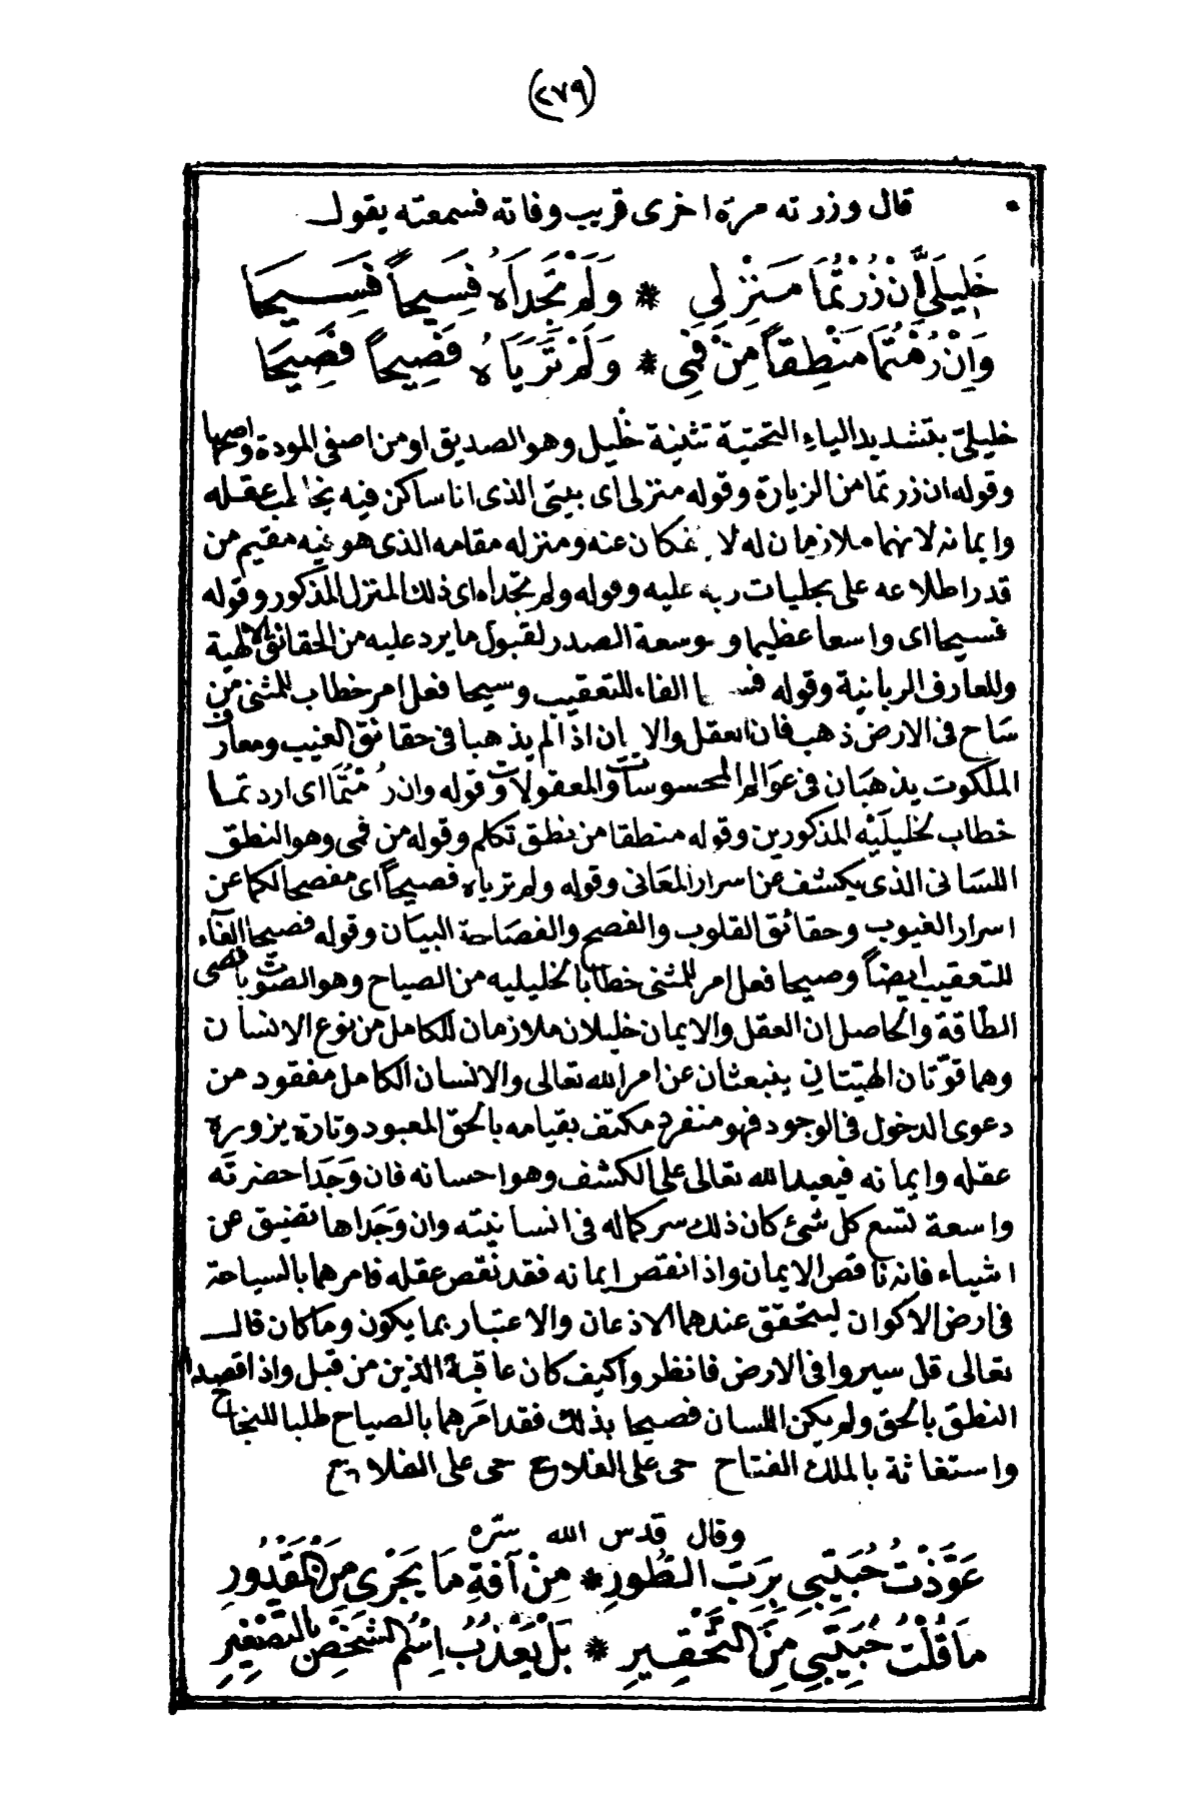 (٢٧٩)
قال وزرته مرة اخرى قريب وفاته فسمعته يقول
خَلِيلَيَّ اِنْ زُرْتُمَا مَنْزِلِي * وَلَمْ تَجِدَاهُ فَسِيحاً فَسِيحَا
وَاِنْ رُمْتُمَا مَنْطِقاً مِنْ فَمِي * وَلَمْ تَرَيَاهُ فَصِيحاً فَصِيحَا
خليليّ بتشديد الياء التحتية تثنية خليل وهو الصديق او من اصفى المودة واصحها
وقوله ان زرتما من الزيارة وقوله منزلى اى بيتى الذى انا ساكن فيه يخاطب عقله
وايمانه لانهما ملازمان له لا ينفكان عنه ومنزله مقامه الذى هو فيه مقيم من
قدر اطلاعه على تجليات ربه عليه وقوله ولم تجداه اى ذلك المنزل المذكور وقوله
فسيحا اى واسعا عظيما وتوسعة الصدر لقبول ما يرد عليه من الحقائق الالهية
وللعارف الربانية وقوله فسيحا الفاء للتعقيب وسيحا فعل امر خطاب للمثنى من
سَاح فى الارض ذهب فان العقل والايمان اذا لم يذهبا فى حقائق الغيب ومعارف
الملكوت يذهبَان فى عَوالم المحسوسات والمعقولات وقوله وان رُمْتُمَا اى اردتما
خطاب لخليلَيْه المذكورين وقوله منطقا من نطق تكلم وقوله من فمى وهو النطق
اللسَانى الذى يكشف عن اسرار المعَانى وقوله ولم ترياه فصيحاً اى مفصحا لكما عن
اسرار الغيوب وحقائق القلوب والفصح والفصَاحة البيَان وقوله فصيحا الفآء
للتعقيب ايضاً وصيحا فعل امر للمثنى خطابا لخليليه من الصياح وهو الصَّوت باقصى
الطّاقة والحاصل ان العقل والايمان خليلان ملازمان للكامل من نوع الانسان
وهما قوّتان الهيّتان ينبعثان عن امر الله تعالى والانسان الكامل مفقود من
دعوى الدخول فى الوجود فهو منفرد مكتف بقيامه بالحق المعبود وتارة يزوره
عقله وايمانه فيعبد الله تعالى على الكشف وهو احسانه فان وَجَدَا حضرتَه
واسعة تسع كل شئ كان ذلك سر كماله فى انسانيته وان وَجَداها تضيق عن
اشياء فانه ناقص الايمان واذا نقص ايمانه فقد نقص عقله فامرهما بالسياحة
فى ارض الاكوان ليتحقق عندهما الاذعان والاعتبار بما يكون وما كان قال
تعالى قل سيروا فى الارض فانظروا كيف كان عاقبة الذين من قبل واذا قصدا
النطق بالحق ولم يكن اللسان فصيحا بذلك فقد امَرهما بالصياح طلبا للنجاح
واستغاثة بالملك الفتاح حى على الفلاح حى على الفلاح
وقال قدس الله سّره
عَوَّذْتُ حُبَيِّبِي بِرَبِّ الطُّورِ * مِنْ آفَةِ مَا يَجْرِى مِنَ الْمَقْدُورِ
مَا قُلْتُ حُبَيِّبِي مِنَ التَّحْقِيرِ * بَلْ يَعْذُبُ اِسْمُ الشَّخْصِ بِالتَّصْغِيرِ